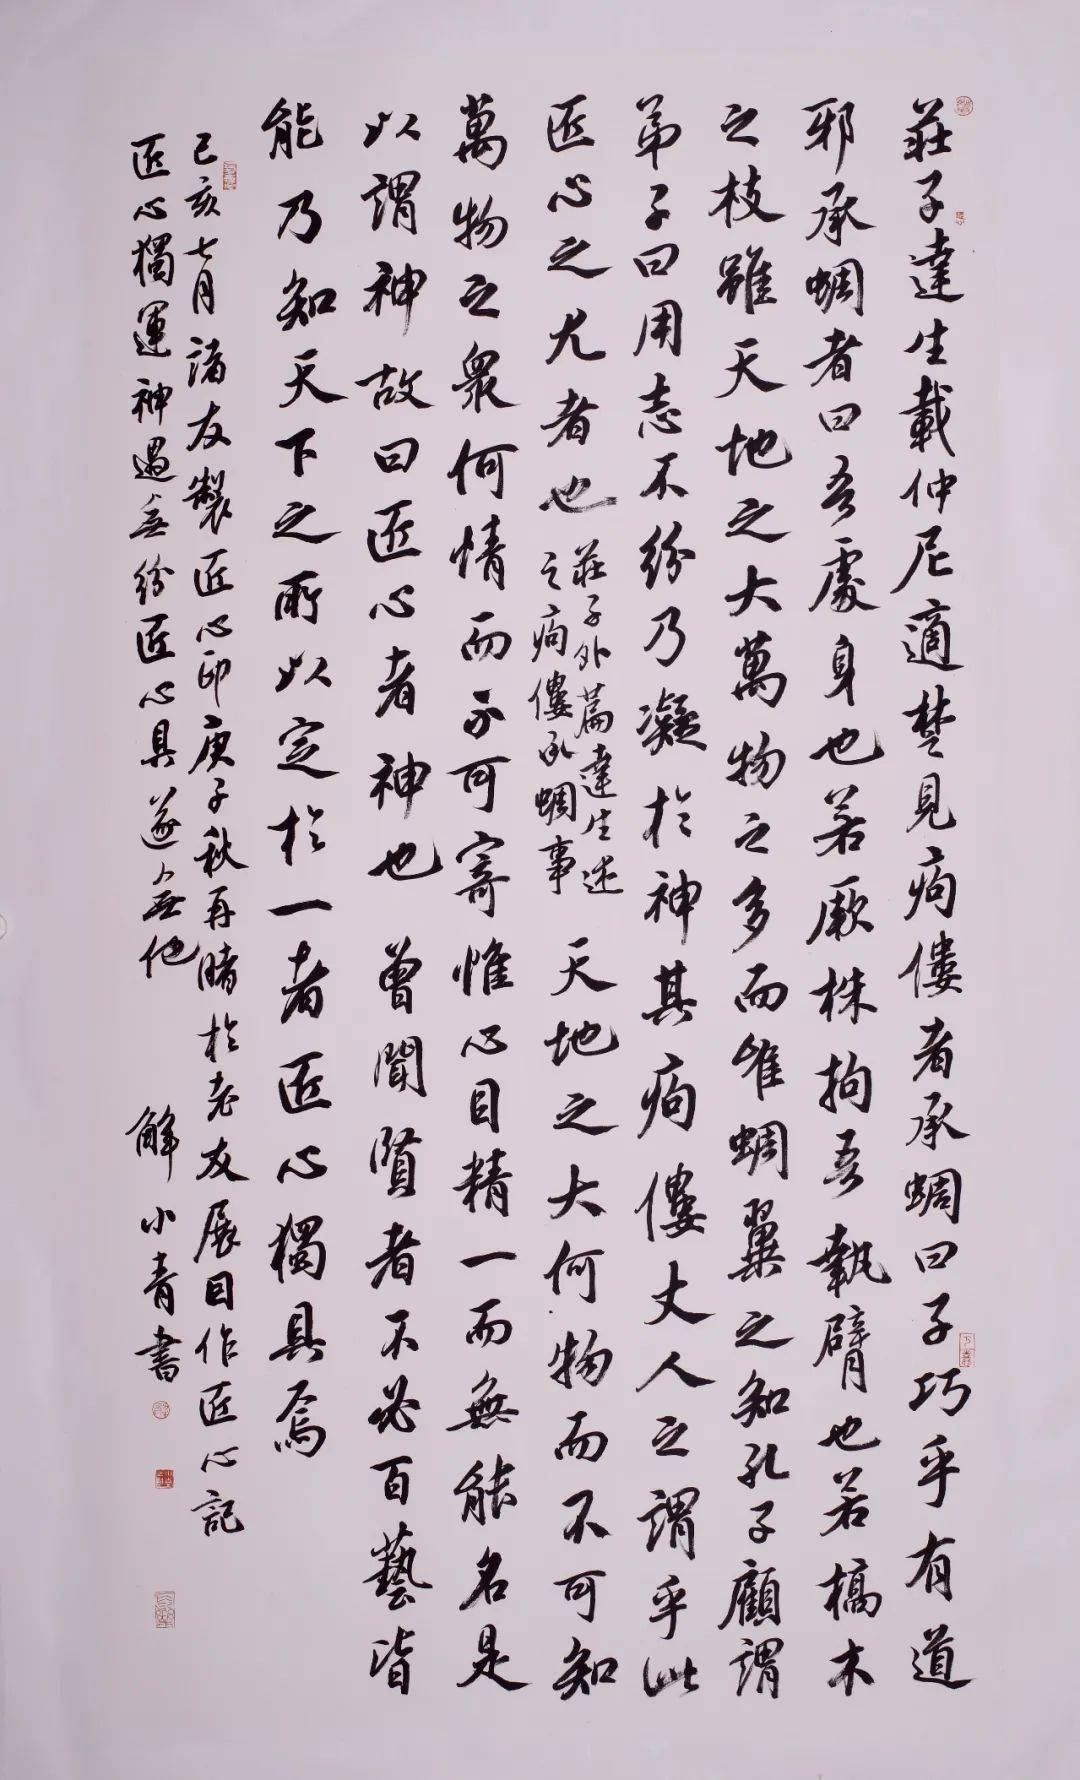 莊子達生載仲尼適楚見痀僂者承蜩曰子巧乎有道
邪承蜩者曰吾處身也若厥株拘吾執臂也若槁木
之枝雖天地之大萬物之多而唯蜩翼之知孔子顧謂
弟子曰用志不紛乃凝於神其痀僂丈人之謂乎此
匠心之尤者也
莊子外篇達生述
之痀僂承蜩事
天地之大何物而不可知
萬物之衆何情而不可寄惟心目精一而無能名是
以謂神故曰匠心者神也曾聞賢者不必百藝皆
能乃知天下之所以定於一者匠心獨具焉
己亥七月諸友製匠心印庚子秋再睹於老友展目作匠心記
匠心獨運神遇無紛匠心具遂無他
解小青書